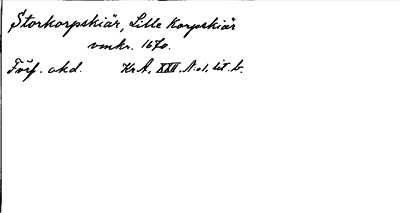 Storkorpskiär, Lille Korpskiär
omkr. 1670.
Förf. okd. Kr.A. XXII. N:o 1. lit. b.